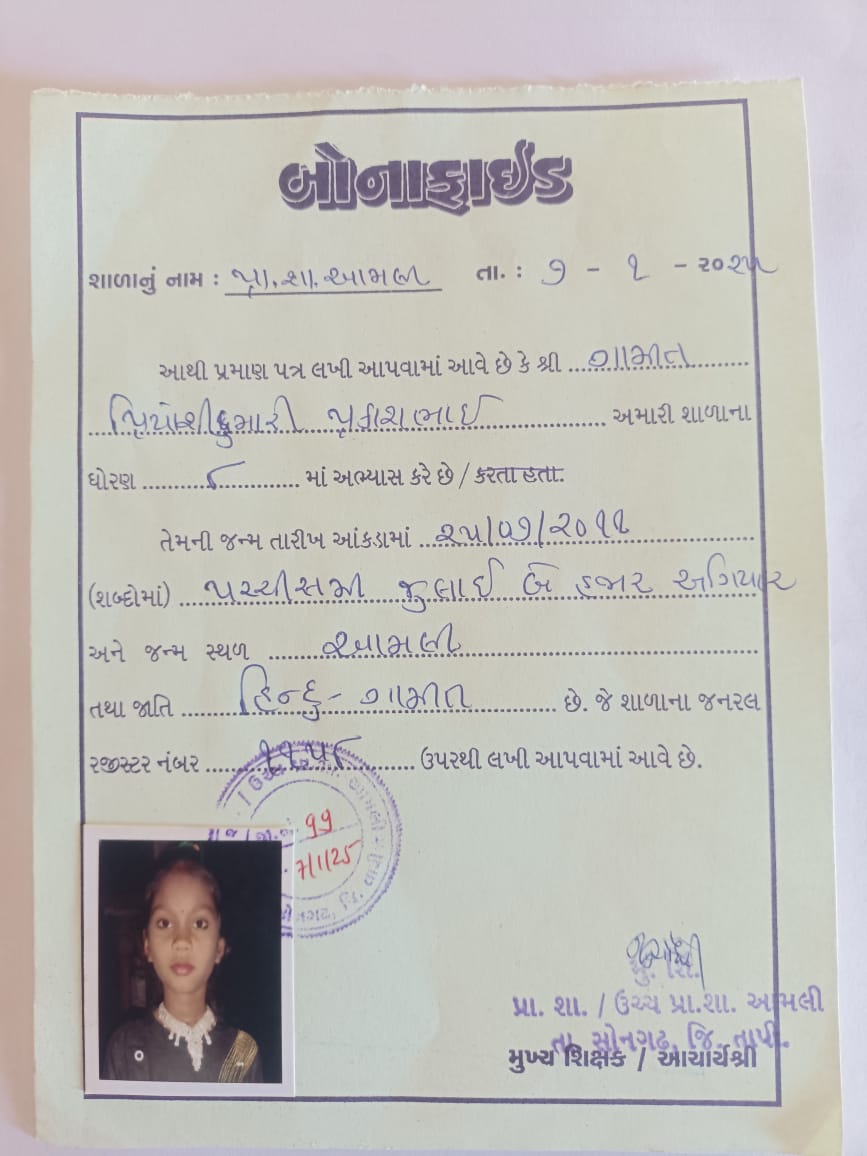 બોનાફાઈડ
શાળાનું નામ : પ્રા.શા.આમલી તા. : ૭ - ૧ - ૨૦૨૫
આથી પ્રમાણ પત્ર લખી આપવામાં આવે છે કે શ્રી ગામીત
પ્રિયાંશીકુમારી પ્રકાશભાઈ અમારી શાળાના
ધોરણ ૮ માં અભ્યાસ કરે છે / કરતા હતા.
તેમની જન્મ તારીખ આંકડામાં ૨૫/૦૭/૨૦૧૧
(શબ્દોમાં) પચ્ચીસમી જુલાઈ બે હજાર અગિયાર
અને જન્મ સ્થળ આમલી
તથા જાતિ હિન્દુ - ગામીત છે. જે શાળાના જનરલ
રજીસ્ટર નંબર ૧૧૫૮ ઉપરથી લખી આપવામાં આવે છે.
૧૧
7/1/25
પ્રા. શા. / ઉચ્ચ પ્રા.શા. આમલી
તા. સોનગઢ, જિ. તાપી.
મુખ્ય શિક્ષક / આચાર્યશ્રી